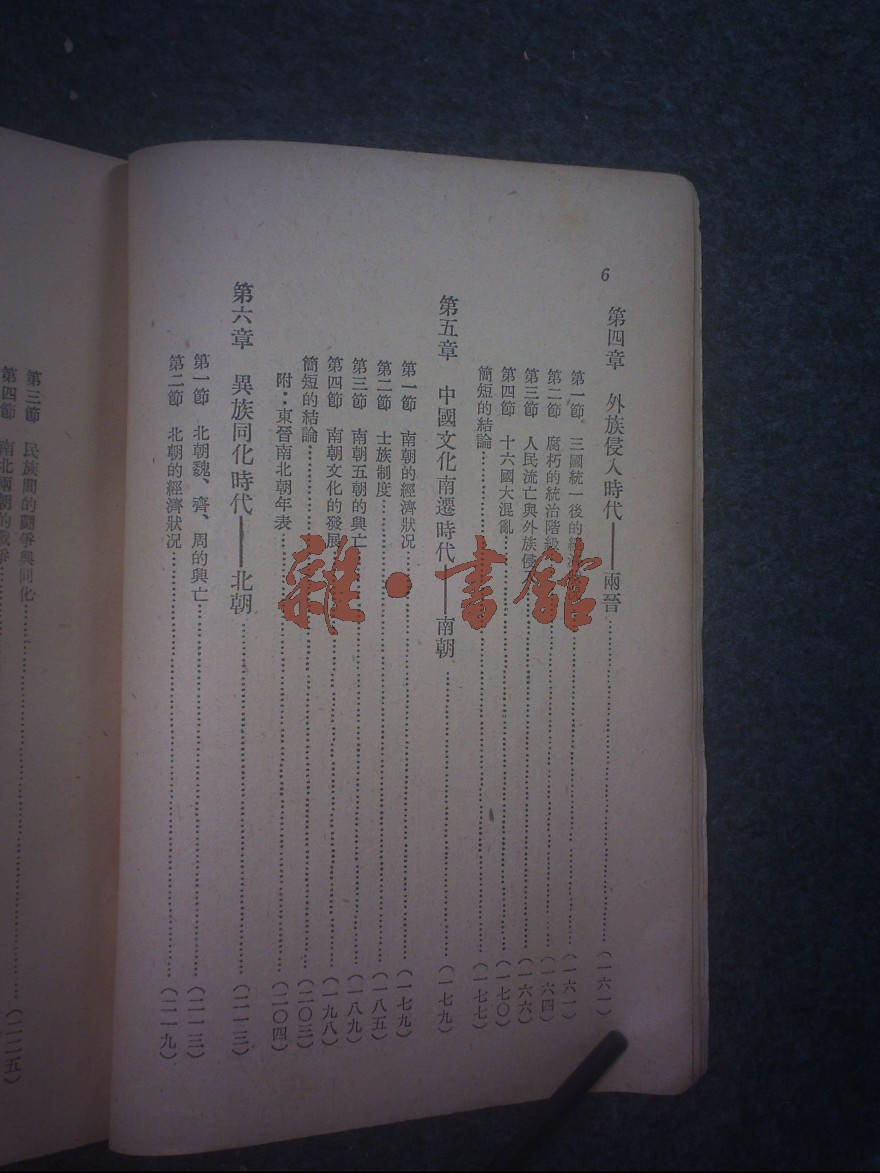 6
第四章　外族侵入時代——兩晉……(一六一)
第一節　三國統一後的經濟……(一六一)
第二節　腐朽的統治階級……(一六四)
第三節　人民流亡與外族侵入……(一六六)
第四節　十六國大混亂……(一七〇)
簡短的結論……(一七七)
第五章　中國文化南遷時代——南朝……(一七九)
第一節　南朝的經濟狀况……(一七九)
第二節　士族制度……(一八五)
第三節　南朝五朝的興亡……(一八九)
第四節　南朝文化的發展……(一九八)
簡短的結論……(二〇三)
附：東晉南北朝年表……(二〇四)
第六章　異族同化時代——北朝……(二一三)
第一節　北朝魏、齊、周的興亡……(二一三)
第二節　北朝的經濟狀况……(二一九)
第三節　民族間的鬭爭與同化……(二二五)
第四節　南北兩朝的戰爭……
雜·書館